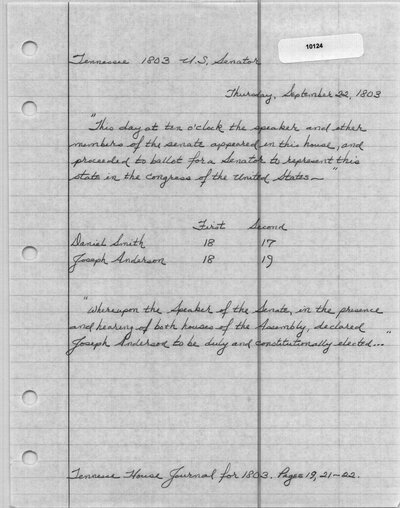 10124
Tennessee 1803 U.S. Senator
Thursday, September 22, 1803
"This day at ten o'clock the speaker and other
members of the senate appeared in this house, and
proceeded to ballot for a Senator to represent this
state in the congress of the United States—"
First Second
Daniel Smith 18 17
Joseph Anderson 18 19
"Whereupon the Speaker of the Senate, in the presence
and hearing of both houses of the Assembly, declared
Joseph Anderson to be duly and constitutionally elected..."
Tennessee House Journal for 1803. Pages 19, 21-22.